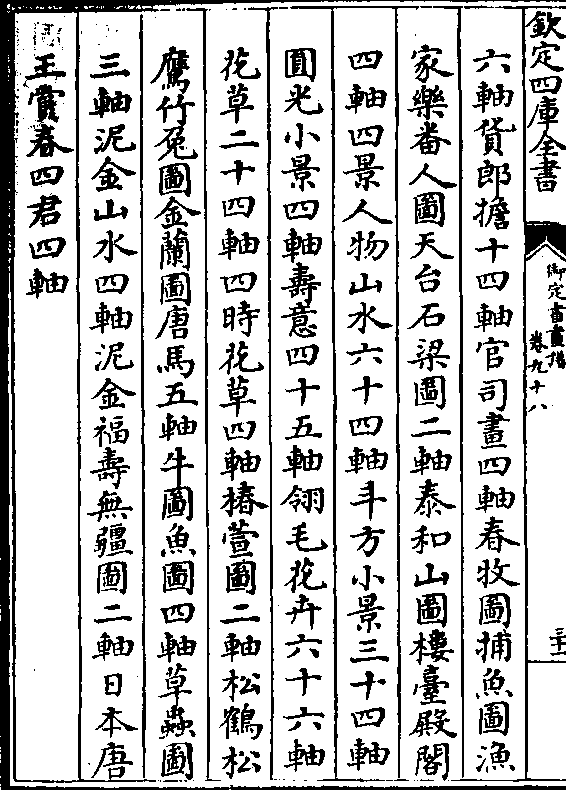 欽定四庫全書
御定書畫譜
卷九十八
三十一
六軸貨郎擔十四軸官司畫四軸春牧圖捕魚圖漁
家樂畨人圖天台石梁圖二軸泰和山圖樓臺殿閣
四軸四景人物山水六十四軸斗方小景三十四軸
圓光小景四軸壽意四十五軸翎毛花卉六十六軸
花草二十四軸四時花草四軸椿萱圖二軸松鶴松
鷹竹兔圖金蘭圖唐馬五軸牛圖魚圖四軸草蟲圖
三軸泥金山水四軸泥金福壽無疆圖二軸日本唐
王賞春四君四軸